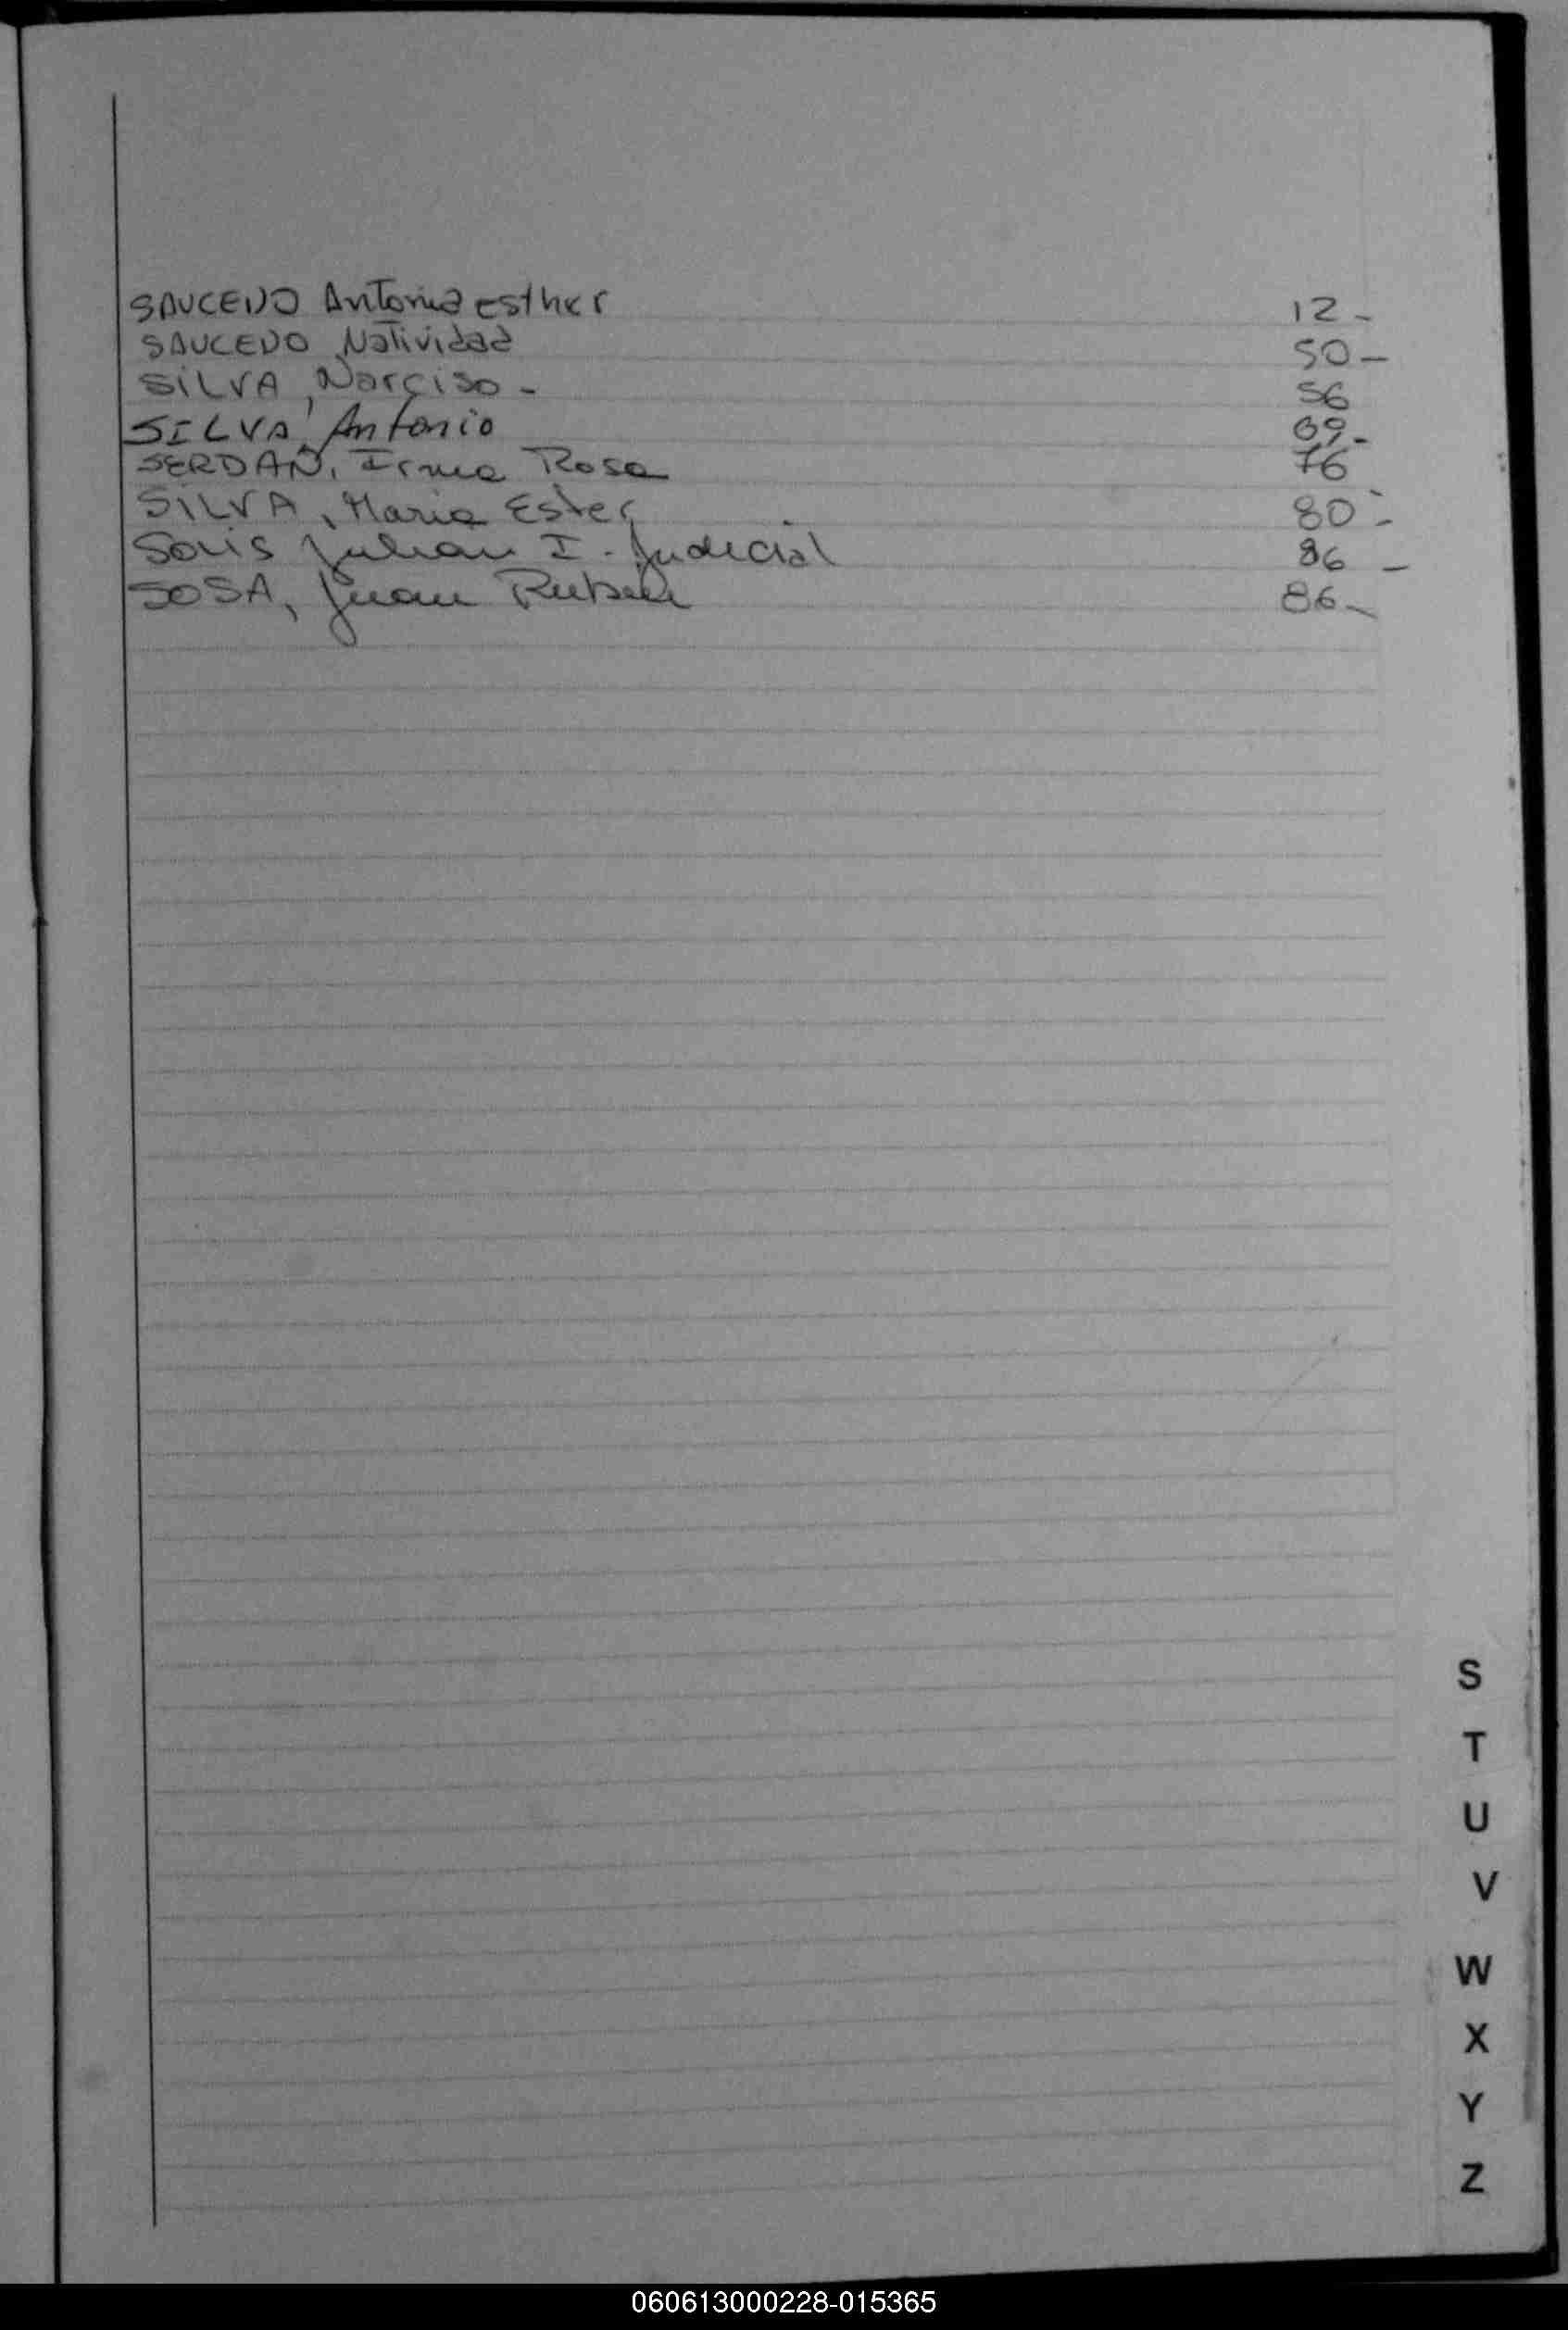 SAUCEDO Antonia esther 12-
SAUCEDO Natividad 50-
SILVA, Narciso - 56
SILVA, Antonio 69-
SERDAN, Irma Rosa 76
SILVA, Maria Ester 80-
Solis Julian I. Judicial 86-
SOSA, Juan Ruben 86-
S
T
U
V
W
X
Y
Z
060613000228-015365